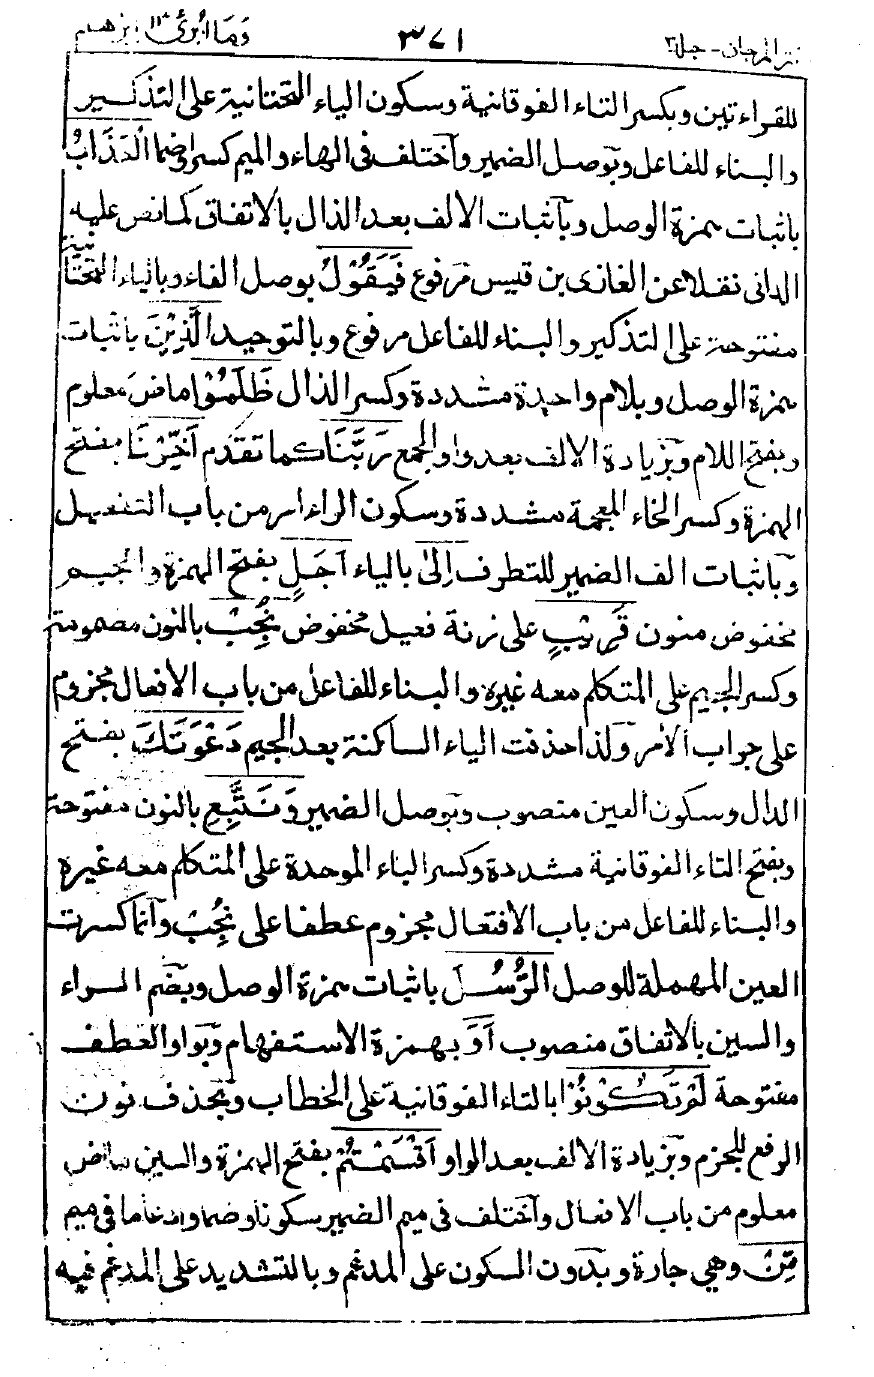 نثر المرجان - جلد ٣ ٣٧١ وما أبرئ ١٣ إبرهيم
للقراءتين وبكسر التاء الفوقانية وسكون الياء التحتانية على التذكير
والبناء للفاعل وبوصل الضمير وآختلف في الهاء والميم كسرا وضما الْعَذَابُ
باثبات همزة الوصل وبآثبات الالف بعد الذال بالاتفاق كما نص عليه
الدانى نقلا عن الغازى بن قيس مرفوع فَيَقُوْلُ بوصل الفاء وبالياء التحتانية
مفتوحة على التذكير والبناء للفاعل مرفوع وبالتوحيد الَّذِيْنَ باثبات
همزة الوصل وبلام واحدة مشددة وكسر الذال ظَلَمُوْا ماض معلوم
وبفتح اللام وبزيادة الالف بعد واو الجمع رَبَّنَا كما تقدم اَخِّرْنَا بفتح
الهمزة وكسر الخاء المعجمة مشددة وسكون الراء امر من باب التفعيل
وبآثبات الف الضمير للتطرف اِلىٰ بالياء اَجَلٍ بفتح الهمزة والجيم
مخفوض منون قَرِيْبٍ على زنة فعيل مخفوض نُجِبْ بالنون مضمومة
وكسر الجيم على المتكلم معه غيره والبناء للفاعل من باب الافعال مجزوم
على جواب الأمر ولذا حذفت الياء الساكنة بعد الجيم دَعْوَتَكَ بفتح
الدال وسكون العين منصوب وبوصل الضمير وَنَتَّبِعِ بالنون مفتوحة
وبفتح التاء الفوقانية مشددة وكسر الباء الموحدة على المتكلم معه غيره
والبناء للفاعل من باب الافتعال مجزوم عطفا على نُجِبْ وآنما كسرت
العين المهملة للوصل الرُّسُلَ باثبات همزة الوصل وبضم الراء
والسين بالاتفاق منصوب اَوَ بهمزة الاستفهام وبواو العطف
مفتوحة لَمْ تَكُوْنُوْا بالتاء الفوقانية على الخطاب وبحذف نون
الرفع للجزم وبزيادة الالف بعد الواو اَقْسَمْتُمْ بفتح الهمزة والسين ماض
معلوم من باب الافعال وآختلف في ميم الضمير سكونا وضما وادغاما في ميم
مِّنْ وهي جارة وبدون السكون على المدغم وبالتشديد على المدغم فيه